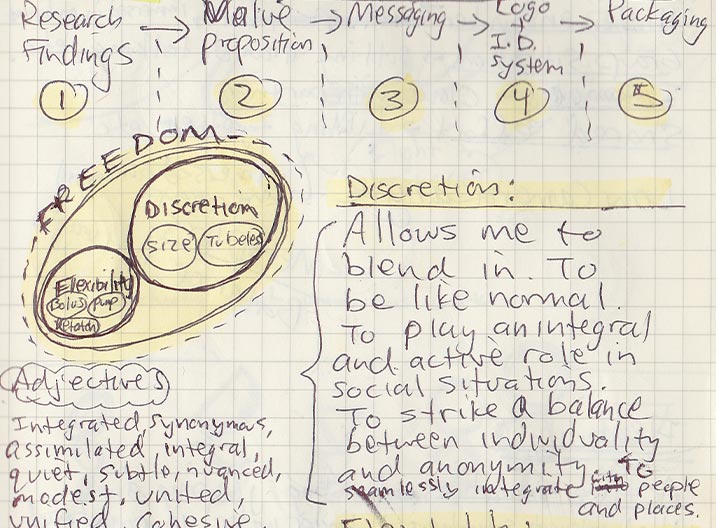 Research → Value → Messaging → Logo → Packaging
Findings proposition + I.D. System
1 2 3 4 5
FREEDOM
Discretion
Size Tubeless
Flexibility
Bolus Pump
Discretion:
Allows me to
blend in. To
be like normal.
To play an integral
and active role in
social situations.
To strike a balance
between individuality
and anonymity. To
seamlessly integrate with people
and places.
Adjectives
Integrated, synonymous,
assimilated, integral,
quiet, subtle, nuanced,
modest, united,
unified, cohesive,